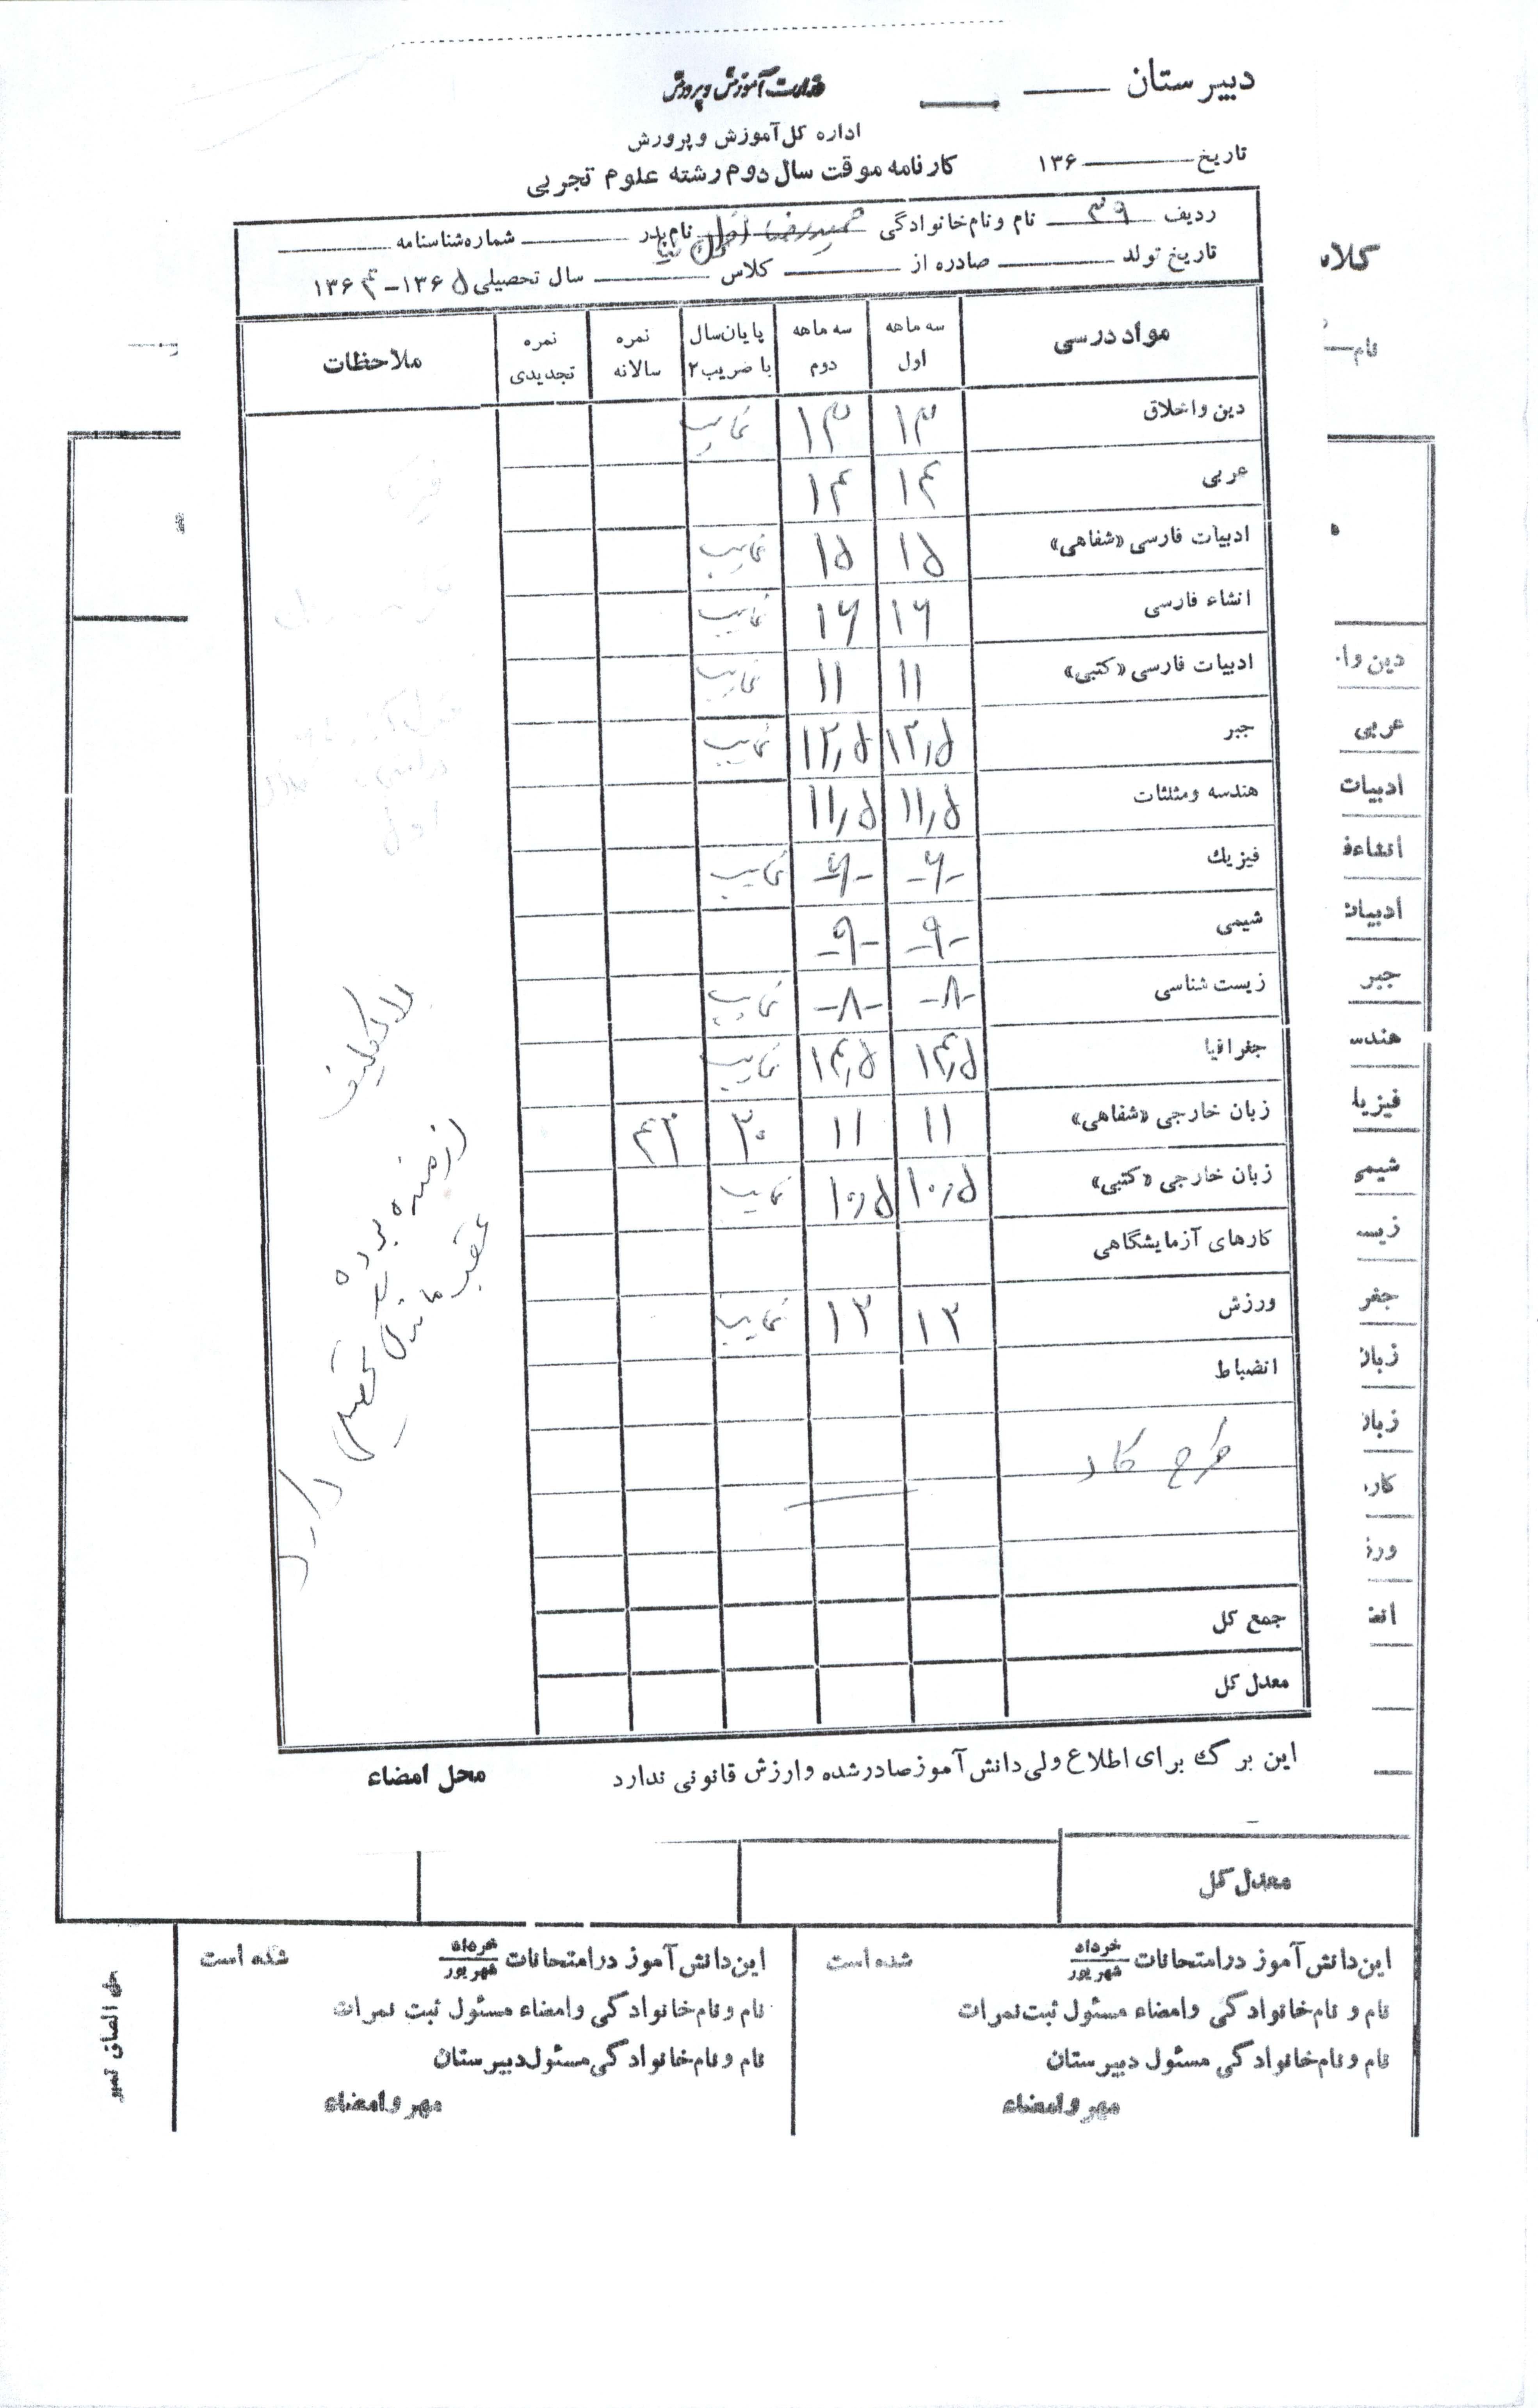 دبیرستان
وزارت آموزش و پرورش
اداره کل آموزش و پرورش
تاریخ ۱۳۶
کارنامه موقت سال دوم رشته علوم تجربی
ردیف ۳۹ نام و نام خانوادگی حمیدرضا نام پدر شماره شناسنامه
تاریخ تولد صادره از کلاس سال تحصیلی ۱۳۶۵-۱۳۶۴
مواد درسی سه ماهه اول سه ماهه دوم پایان سال با ضریب ۲ نمره سالانه نمره تجدیدی ملاحظات
دین و اخلاق ۱۳ ۱۳ غایب
عربی ۱۴ ۱۴
ادبیات فارسی «شفاهی» ۱۵ ۱۵ غایب
انشاء فارسی ۱۶ ۱۶ غایب
ادبیات فارسی «کتبی» ۱۱ ۱۱ غایب
جبر ۱۲٫۵ ۱۲٫۵ غایب
هندسه ومثلثات ۱۱٫۵ ۱۱٫۵
فیزیك -۶- -۶- غایب
شیمی -۹- -۹-
زیست شناسی -۸- -۸- غایب
جغرافیا ۱۴٫۵ ۱۴٫۵ غایب
زبان خارجی «شفاهی» ۱۱ ۱۱ ۲۰ ۴۲
زبان خارجی «کتبی» ۱۰٫۵ ۱۰٫۵ غایب
کارهای آزمایشگاهی
ورزش ۱۲ ۱۲ غایب
انضباط
طرح کاد
جمع کل
معدل کل
بلاتکلیف
عقب ماندگی تحصیلی دارد
این برگ برای اطلاع ولی دانش آموز صادر شده و ارزش قانونی ندارد
محل امضاء
کلاس
نام
دین وا
عربی
ادبیات
انشاءف
ادبیات
جبر
هندس
فیزیك
شیمی
زیست
جغر
زبان
زبان
کار
ورز
انض
معدل کل
این دانش آموز در امتحانات خرداد شهریور شده است
نام و نام خانوادگی وامضاء مسئول ثبت نمرات
نام و نام خانوادگی مسئول دبیرستان
مهر و امضاء
این دانش آموز در امتحانات خرداد شهریور شده است
نام و نام خانوادگی وامضاء مسئول ثبت نمرات
نام و نام خانوادگی مسئول دبیرستان
مهر و امضاء
محل الصاق تمبر